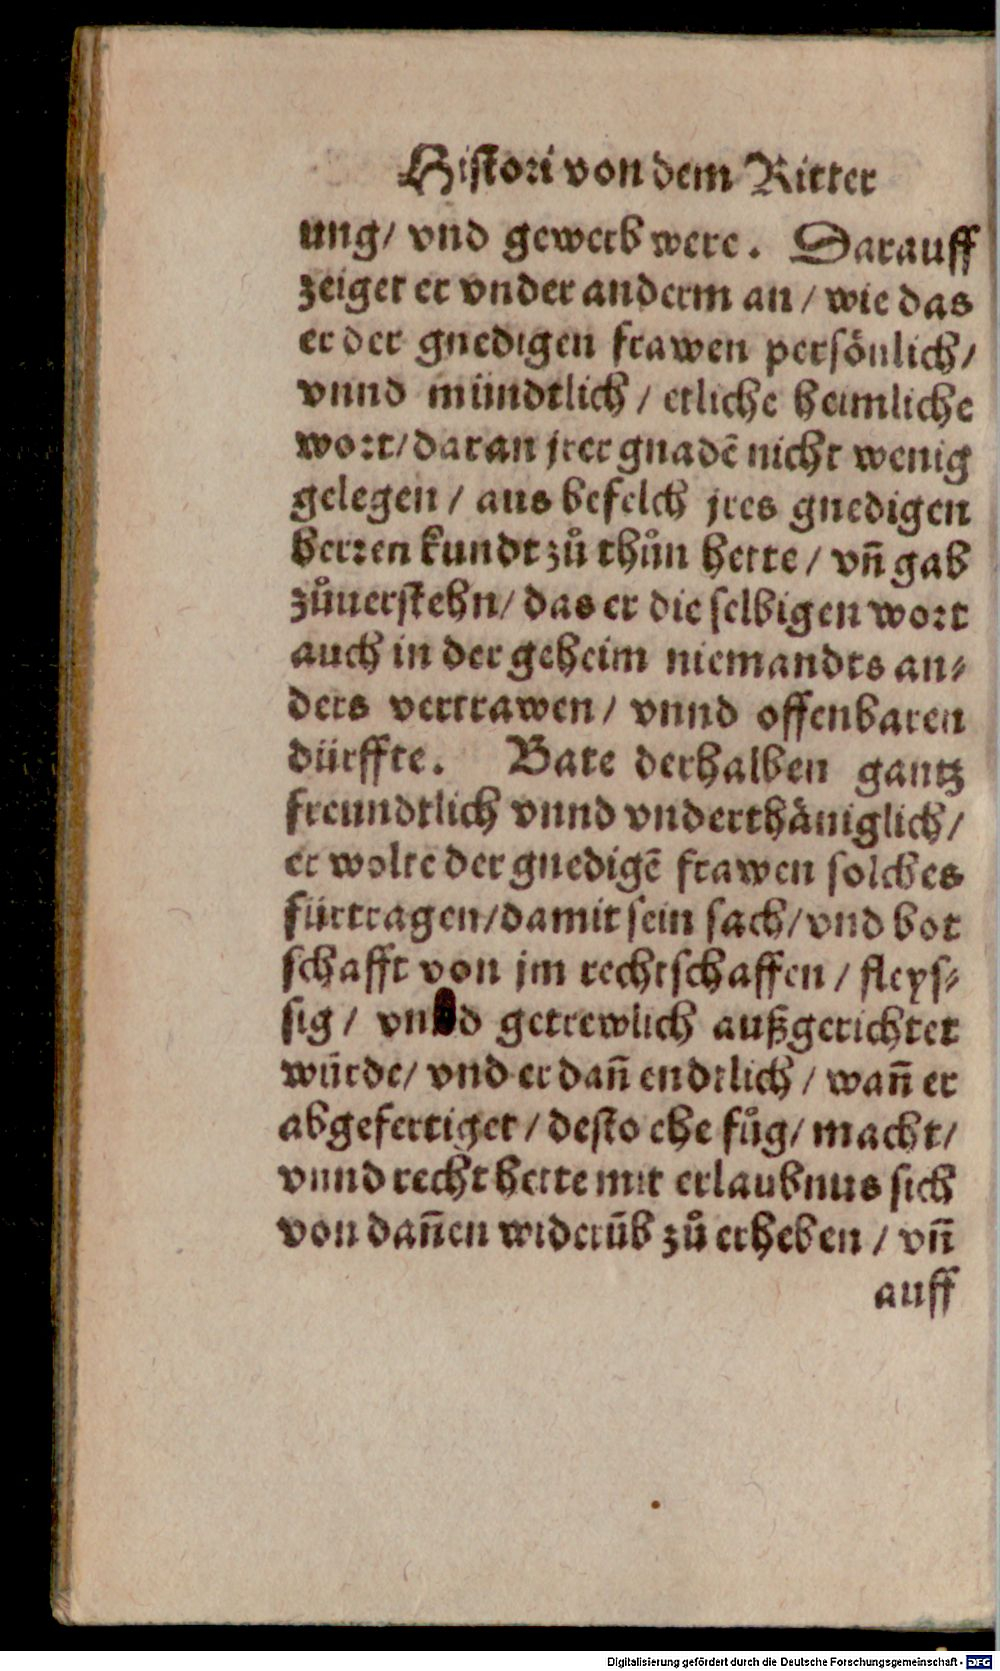 Histori von dem Ritter
ung/ vnd gewerb were. Darauff
zeiget er vnder anderm an/ wie das
er der gnedigen frawen persönlich/
vnnd mündtlich/ etliche heimliche
wort/ daran jrer gnadē nicht wenig
gelegen/ aus befelch jres gnedigen
herren kundt zů thůn hette/ vñ gab
zůuerstehn/ das er die selbigen wort
auch in der geheim niemandts an-
ders vertrawen/ vnnd offenbaren
dürffte. Bate derhalben gantz
freundtlich vnnd vnderthäniglich/
er wolte der gnedigē frawen solches
fürtragen/ damit sein sach/ vnd bot
schafft von jm rechtschaffen/ fleys-
sig/ vnnd getrewlich außgerichtet
würde/ vnd er dañ endtlich/ wañ er
abgefertiget/ desto ehe fůg/ macht/
vnnd recht hette mit erlaubnus sich
von dañen widerūb zů erheben/ vñ
auff
Digitalisierung gefördert durch die Deutsche Forschungsgemeinschaft - DFG